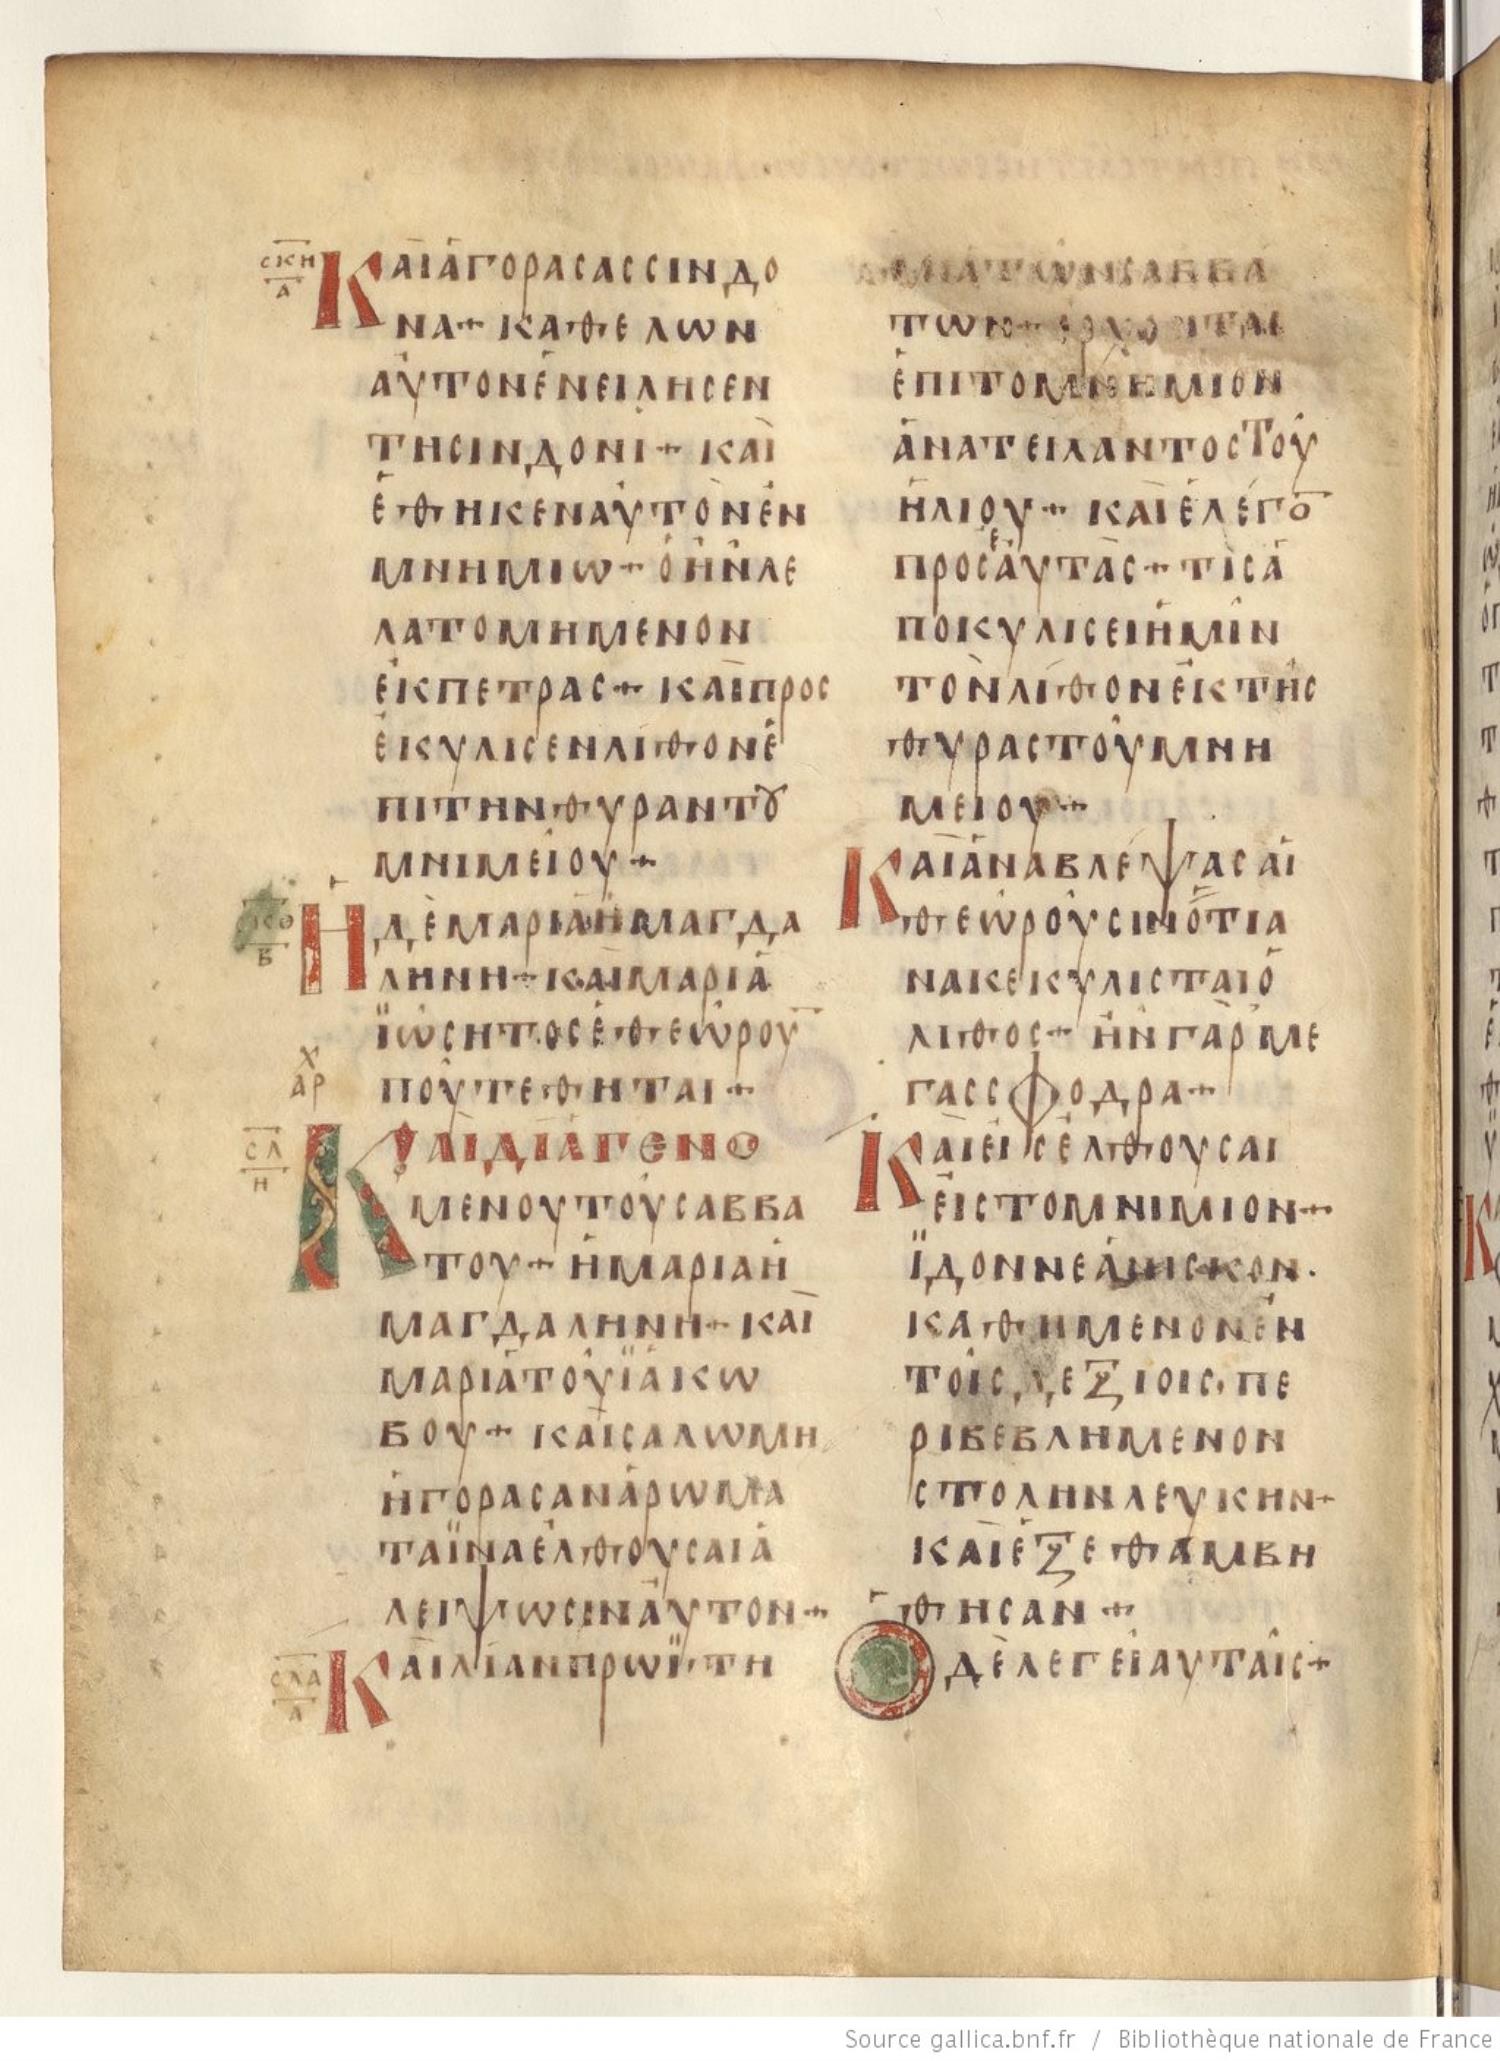 ϹΚΗ
Α
ΚΑΙΑΓΟΡΑϹΑϹϹΙΝΔΟ
ΝΑ+ ΚΑΘΕΛΩΝ
ΑΥΤΟΝΕΝΕΙΛΗϹΕΝ
ΤΗϹΙΝΔΟΝΙ+ ΚΑΙ
ΕΘΗΚΕΝΑΥΤΟΝΕΝ
ΜΝΗΜΙΩ+ ΟΗΝΛΕ
ΛΑΤΟΜΗΜΕΝΟΝ
ΕΚΠΕΤΡΑϹ+ ΚΑΙΠΡΟϹ
ΕΚΥΛΙϹΕΝΛΙΘΟΝΕ
ΠΙΤΗΝΘΥΡΑΝΤȢ
ΜΝΙΜΕΙΟΥ+
ϹΚΘ
Β
ΗΔΕΜΑΡΙΑΗΜΑΓΔΑ
ΛΗΝΗ+ ΚΑΙΜΑΡΙΑ
ΪΩϹΗΤΟϹΕΘΕΩΡΟΥ̅
ΠΟΥΤΕΘΗΤΑΙ+
ΑΡΧ
ϹΛ
Η
ΚΑΙΔΙΑΓΕΝΟ
ΜΕΝΟΥΤΟΥϹΑΒΒΑ
ΤΟΥ+ ΗΜΑΡΙΑΗ
ΜΑΓΔΑΛΗΝΗ+ ΚΑΙ
ΜΑΡΙΑΤΟΥΪΑΚΩ
ΒΟΥ+ ΚΑΙϹΑΛΩΜΗ
ΗΓΟΡΑϹΑΝΑΡΩΜΑ
ΤΑΪΝΑΕΛΘΟΥϹΑΙΑ
ΛΕΙΨΩϹΙΝΑΥΤΟΝ+
ϹΛΑ
Α
ΚΑΙΛΙΑΝΠΡΩΪΤΗ
ΜΙΑΤΩΝϹΑΒΒΑ
ΤΩΝ+ ΕΡΧΟΝΤΑΙ
ΕΠΙΤΟΜΝΗΜΙΟΝ
ΑΝΑΤΕΙΛΑΝΤΟϹΤΟΥ
ΗΛΙΟΥ+ ΚΑΙΕΛΕΓΟ̅
ΠΡΟϹΕΑΥΤΑϹ+ ΤΙϹΑ
ΠΟΚΥΛΙϹΕΙΗΜΙΝ
ΤΟΝΛΙΘΟΝΕΚΤΗϹ
ΘΥΡΑϹΤΟΥΜΝΗ
ΜΕΙΟΥ+
ΚΑΙΑΝΑΒΛΕΨΑϹΑΙ
ΘΕΩΡΟΥϹΙΝΟΤΙΑ
ΝΑΚΕΚΥΛΙϹΤΑΙΟ
ΛΙΘΟϹ+ ΗΝΓΑΡΜΕ
ΓΑϹϹΦΟΔΡΑ+
ΚΑΙΕΙϹΕΛΘΟΥϹΑΙ
ΕΙϹΤΟΜΝΙΜΙΟΝ+
ΪΔΟΝΝΕΑΝΙϹΚΟΝ.
ΚΑΘΗΜΕΝΟΝΕΝ
ΤΟΙϹΔΕΞΙΟΙϹ·ΠΕ
ΡΙΒΕΒΛΗΜΕΝΟΝ
ϹΤΟΛΗΝΛΕΥΚΗΝ+
ΚΑΙΕΞΕΘΑΜΒΗ
ΘΗϹΑΝ+
ΟΔΕΛΕΓΕΙΑΥΤΑΙϹ+
Source gallica.bnf.fr / Bibliothèque nationale de France